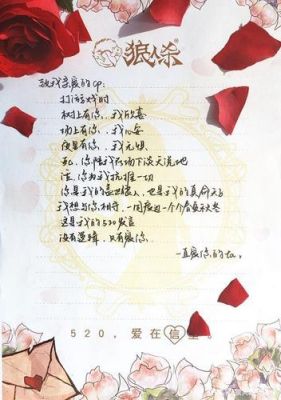 狼人杀
致我亲爱的cp:
打游戏时
树上有你、、我欣喜
场上有你、、我心安
夜里有你、、我无惧
死、你陪我在场下谈天说地
活、你为我抗推一切
你是我的盖世佳人,也是我的真命天子
我想与你相守,一同度过一个个春夏秋冬
这是我的520发言
没有逻辑,只有爱你、
一直爱你的
520,爱在信里。